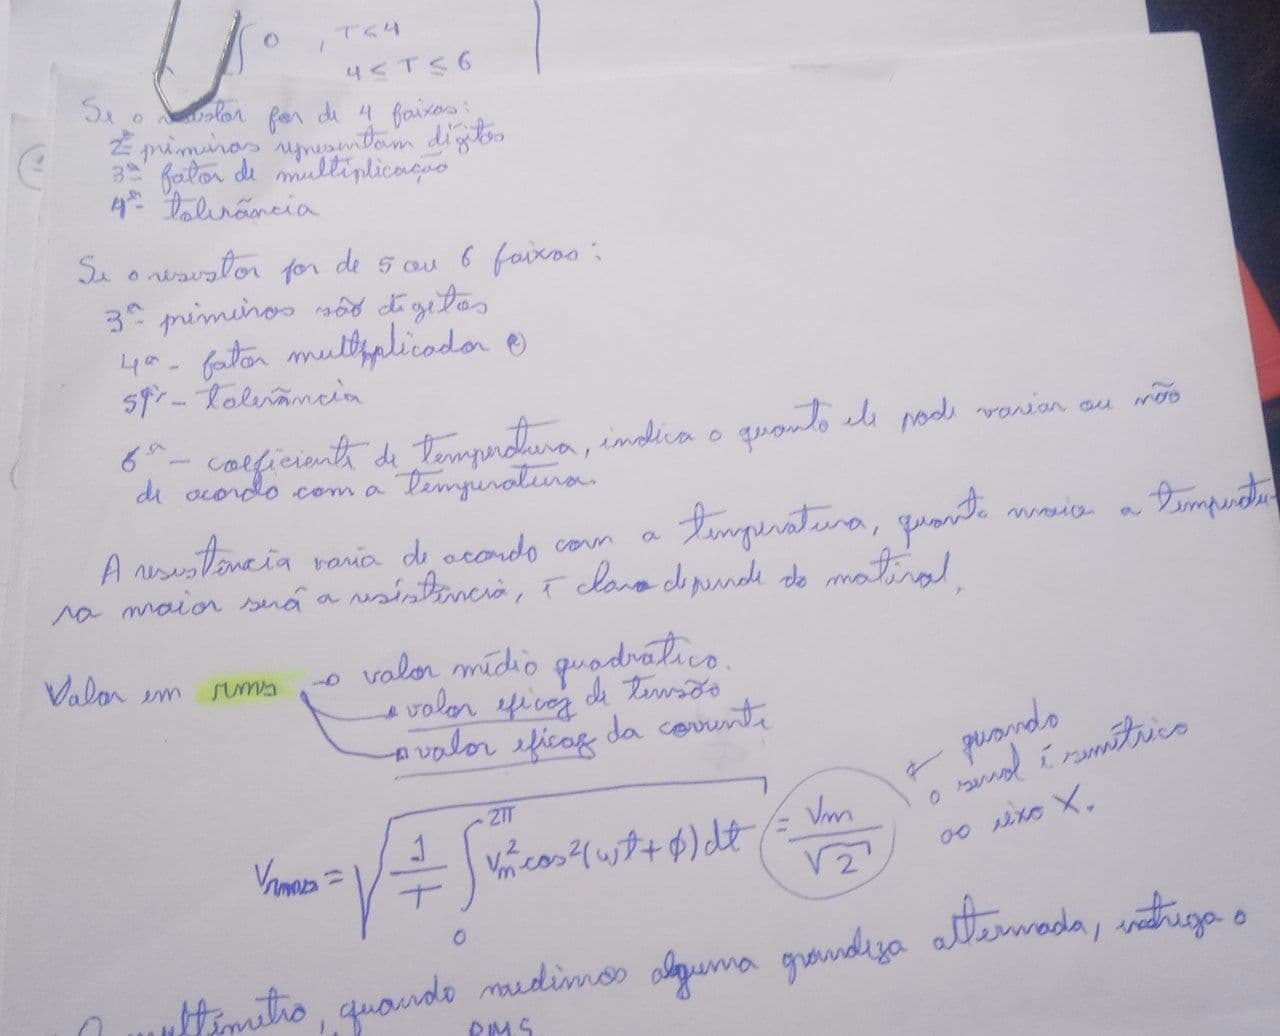 0 , T<4
4 ≤ T ≤ 6
Se o resistor for de 4 faixas:
2ªˢ primeiras representam dígitos
3ª fator de multiplicação
4ª- tolerância
Se o resistor for de 5 ou 6 faixas:
3ª primeiros são digitos
4ª - fator multiplicador
5ª - Tolerância
6ª - coeficiente de temperatura, indica o quanto ele pode variar ou não
de acordo com a temperatura.
A resistência varia de acordo com a temperatura, quanto maior a temperatu-
ra maior será a resistência, é claro depende do matiral.
Valor em rms → valor médio quadrático.
valor eficaz de tensão
valor eficaz da corrente
* quando
o sinal é simétrico
ao eixo X.
Vrms = √(1/T ∫₀^2π Vm² cos²(wt + ϕ) dt) = Vm/√2
O multímetro, quando medimos alguma grandeza alternada, entrega o
RMS